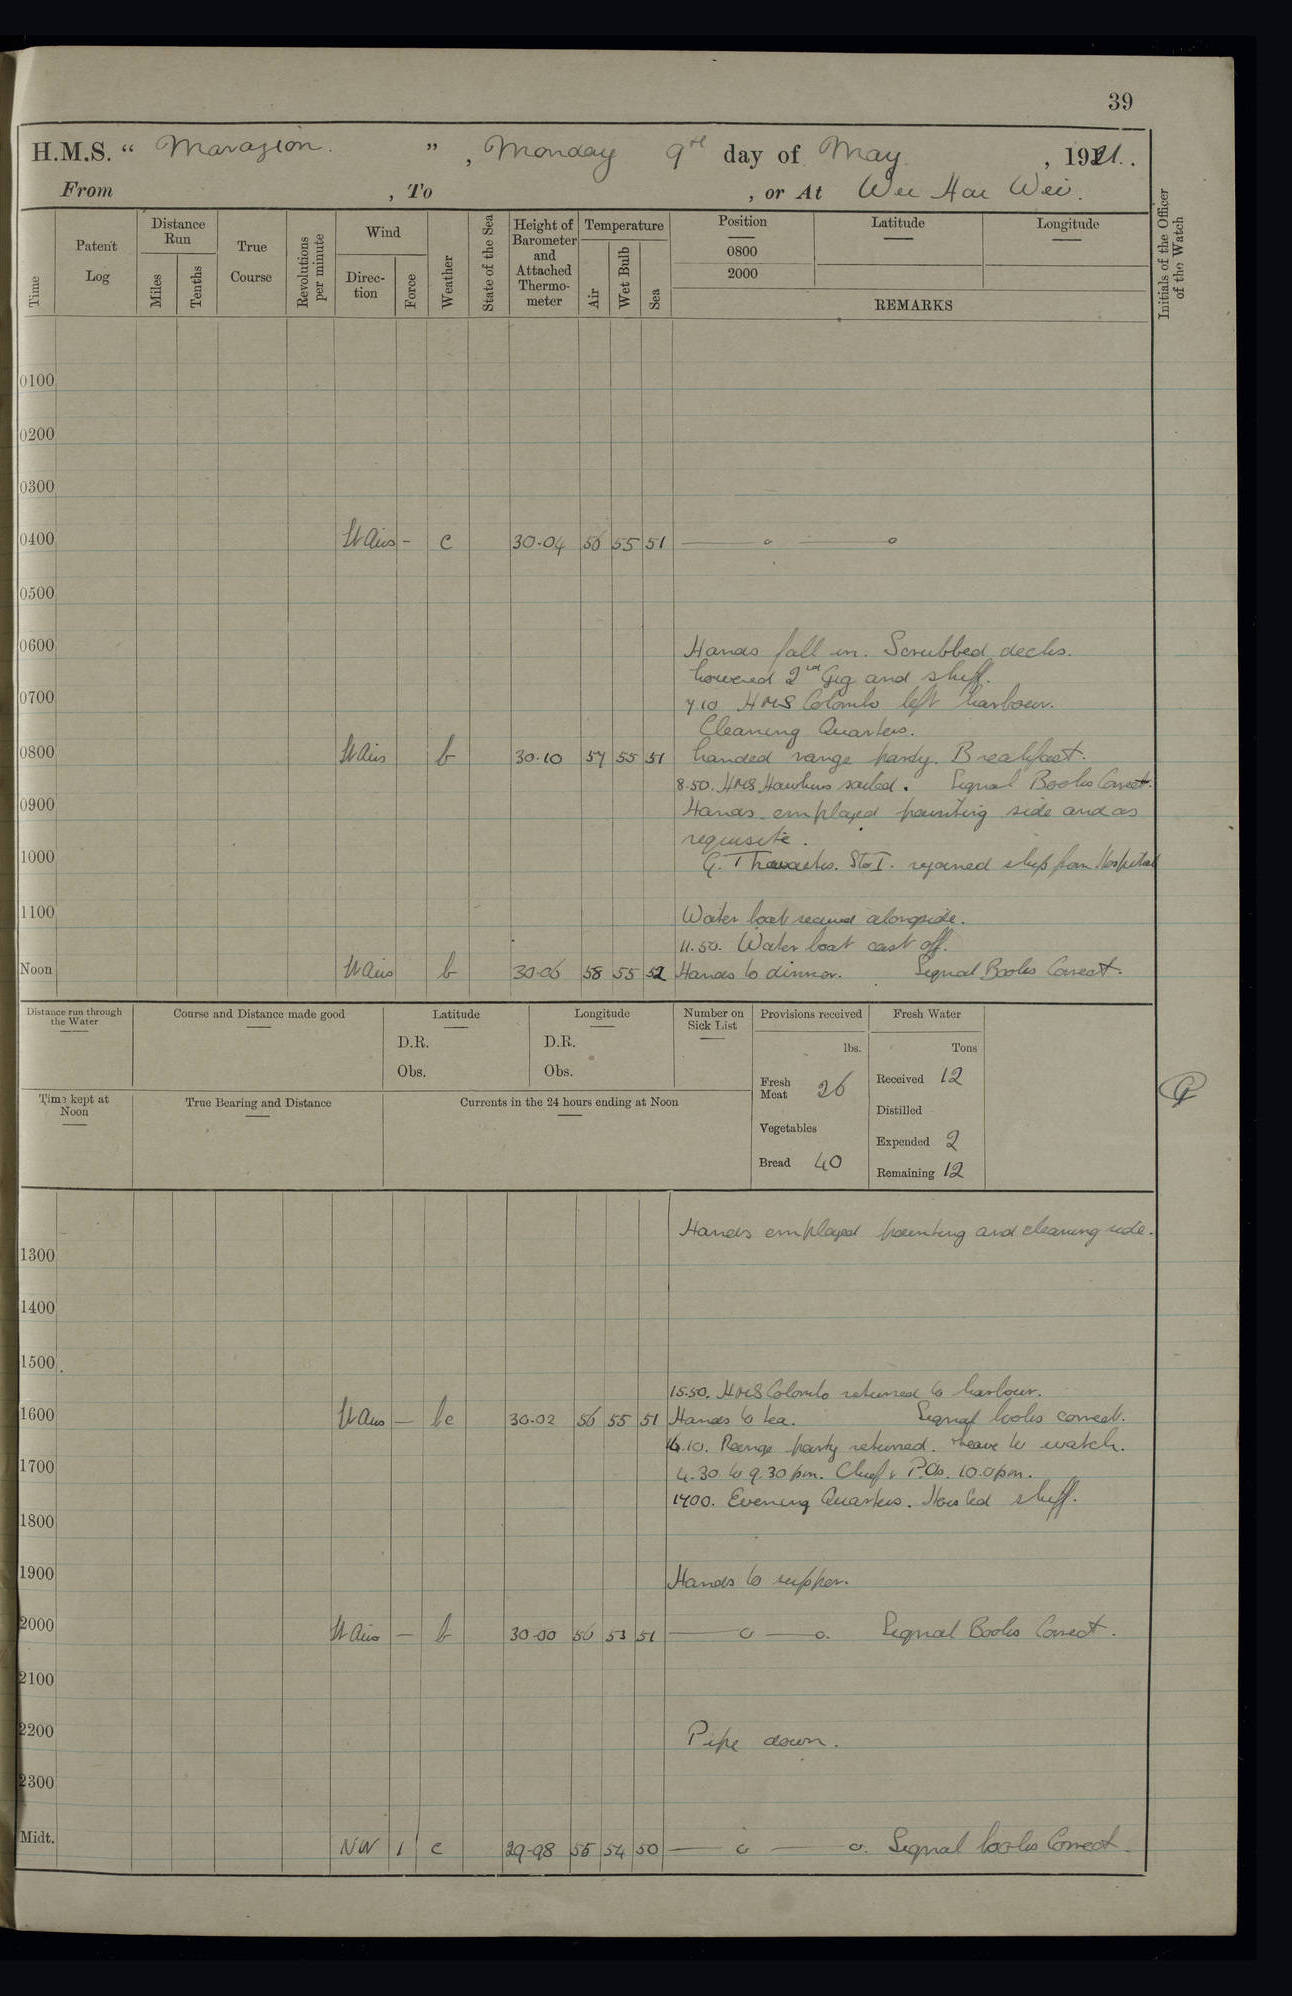 39
H.M.S. “ Marazion. ” , Monday 9th day of May , 1921.
From , To , or At Wei Hai Wei.
Time
Patent Log
Distance Run
Miles
Tenths
True Course
Revolutions per minute
Wind
Direction
Force
Weather
State of the Sea
Height of Barometer and Attached Thermometer
Temperature
Air
Wet Bulb
Sea
Position
0800
2000
Latitude
Longitude
REMARKS
Initials of the Officer of the Watch
0100
0200
0300
0400 Lt Airs - c 30.04 56 55 51 —— o —— o
0500
0600 Hands fall in. Scrubbed decks.
Lowered 2nd Gig and skiff.
0700 7.10 HMS Colombo left harbour.
Cleaning Quarters.
0800 Lt Airs b 30.10 57 55 51 Landed range party. Breakfast.
8.50. HMS Hawkins sailed. Signal Books Correct.
0900 Hands employed painting side and as
requisite.
1000 G. Sto I. rejoined ship from Hospital
1100 Water boat secured alongside.
11.50. Water boat cast off.
Noon Lt Airs b 30.06 58 55 52 Hands to dinner. Signal Books Correct.
Distance run through the Water
Course and Distance made good
Latitude
D.R.
Obs.
Longitude
D.R.
Obs.
Number on Sick List
Provisions received
lbs.
Fresh Meat 26
Vegetables
Bread 40
Fresh Water
Tons
Received 12
Distilled
Expended 2
Remaining 12
Time kept at Noon
True Bearing and Distance
Currents in the 24 hours ending at Noon
Hands employed painting and cleaning side.
1300
1400
1500
15.50. HMS Colombo returned to harbour.
1600 Lt Airs — bc 30.02 56 55 51 Hands to tea. Signal books correct.
16.10. Range party returned. Leave to watch.
1700 4.30 to 9.30 pm. Chief & P.Os. 10.0 pm.
1700. Evening Quarters. Hoisted skiff.
1800
1900 Hands to supper.
2000 Lt Airs — b 30.00 56 53 51 —— o —— o. Signal Books Correct.
2100
2200 Pipe down.
2300
Midt. NW 1 c 29.98 55 54 50 —— o —— o. Signal books Correct.